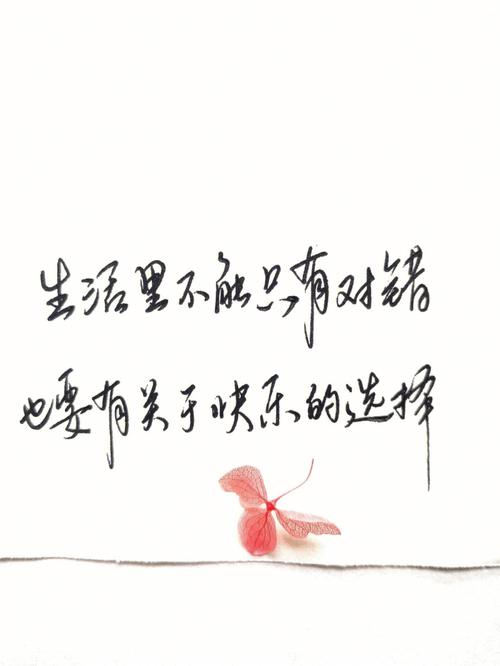 生活里不能只有对错
也要有关于快乐的选择